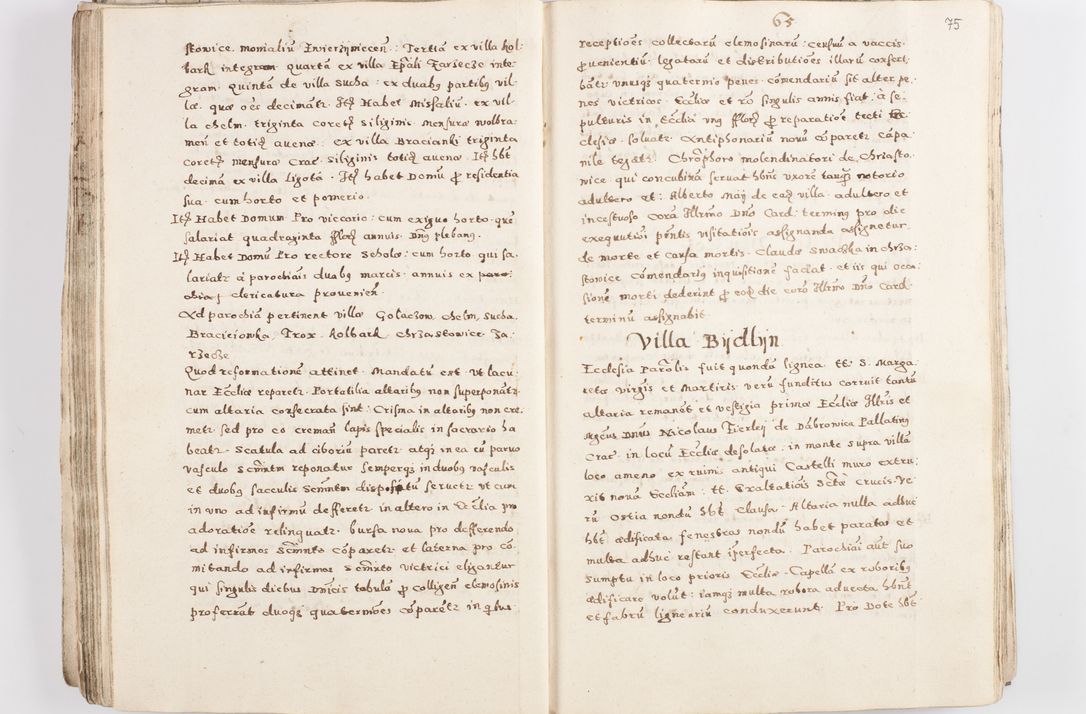 stowice monialiũ Zwierzÿnieceñ: Tertiã ex villa Kol:
bark integram quartã ex villa Epãli Zarsecze inte=
gram quintã de villa sucha: ex duabꝫ partibꝫ vil
læ quæ oẽs decimãtr. Itꝫ Habet Missaliũ ex vil
la chelm triginta coretꝫ siliginis mensuræ wolbra:
meñ et totiđ auenæ: ex villa Bracianki triginta
coretꝫ mensuræ Crac siliginis totiđ auenæ Itꝫ hẽt
decimã ex villa Ligota. Itꝫ habet Domũ ꝓ residentia
sua cum horto et pomerio
Itꝫ Habet Domum Pro viccario: cum exiguo horto quẽ
salariat quadraginta fflorꝫ annuis Dnꝰ plebanꝰ
Itꝫ Habet Domũ Pro rectore scholæ: cum horto qui sa=
lariatr à parochiais duabꝫ marcis annuis ex paro:
chia clericatura proueniẽn
Ad parochiã pertinent villæ Golaczow chelm, sucha,
Braciciowka, Trox, Kolbark Chrzastowice Za:
rzecze
Quod reformationẽ attinet Mandatũ est vt lacu:
nar Ecclæ reparetr Portatilia altaribꝫ non superponãtr
cum altaria consecrata sint: Crisma in altaribꝫ non cre:
metr sed pro eo cremañ lapis specialis in sacrario ha
beatr Scatula ad ciboriũ paretr atqꝫ in ea cũ paruo
vasculo scm̃tm reponatur semperqꝫ in duobꝫ vasculis
et duobꝫ sacculis scm̃tm dispositũ seruetr vt cum
in vno ad infirmũ defferetr in altero in Ecclia pro
adoratiõe relinquatr. bursa noua pro defferendo
ad infirmos scm̃nto cõparetr et laterna pro cõ
mitando ad infirmos scm̃nto victrici eligantur
qui singulis diebus Dnĩcis tabulã ꝓ colligeñ elemosinis
proferrãt duosqꝫ quaterniones cõparetr in qibus
65
75
receptiões collectarũ elemosinarũ: censuũ a vaccis
ꝓuenientiũ legatorũ et distributiões illarũ conferi:
bãtr vnusqꝫ quaternio penes cõmendariũ sit alter pe:
nes victricos. Ecclæ et rõ singulis annis fiat à se:
pulturis in Ecclia vnꝰ fflorꝫ ꝓ reparatiõe tecti
clesiæ soluatr Antiphonariũ nouũ cõparetr cãpa:
nile tegatr. Chrõphoro molendinatori de Chrzasto
wice qui concubinã seruat hñtẽ vxorẽ tanqꝫ notorio
adultero et: Alberto Maÿ de eađ villa adultero et
incestuoso Corã Illrimo Dnõ Card: terminꝰ pro die
exequutiõi pñtis visitatiõis assignanda assignetur
de morte et causa mortis Claudæ swaczka in chrza:
stowice Cõmendariꝰ inquisitionẽ faciat et iis qui occa:
sionẽ morti dederint ꝓ eođ die corã Illrimo Dnõ Card
terminũ assignabit
Villa Bÿdlÿn
Ecclesia Parõlis fuit quondã lignea tt: S. Marga
retæ virgis et Martiris verũ funditus corruit tantũ
altaria remanẽt et vestigia primæ Ecclæ Illris et
Mgcus Dnus Nicolaus Fierleÿ de Dãbrowica Pallatinꝰ
Crac in locũ Ecclæ desolatæ in monte supra villã
loco ameno ex ruinis antiqui Castelli muro extru:
xit nouã Eccliam: tt: Exaltatiõis sctæ crucis Ve:
rũ Ostia nondũ hẽt Clausa. Altaria nulla adhuc
hẽt ædificata fenestras nondũ habet paratas et
multa adhuc restant iperfecta. Parochiãi aũt suo
sumptu in loco prioris Ecclæ. Capellã ex roboribꝫ
ædificare volũt: iamqꝫ multa robora aduecta hñt
et fabrũ lignariũ conduxerunt Pro Dote hẽt